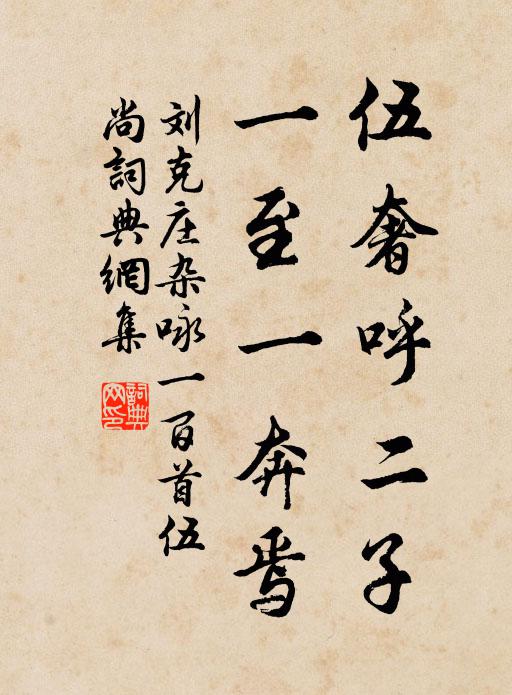 伍奢呼二子
一至一奔焉
刘克庄杂咏一百首伍
尚詞典網集
詞典
网印